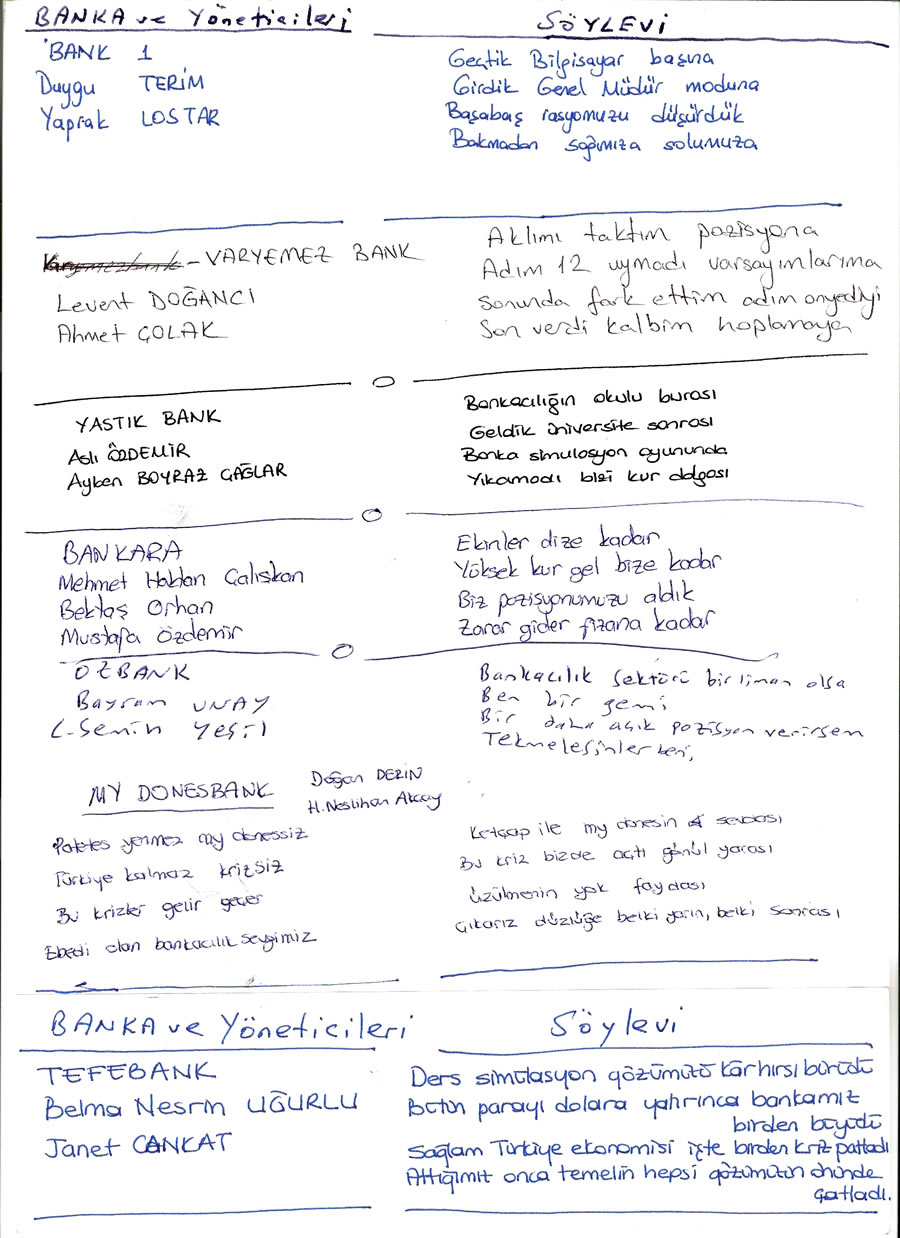 BANKA ve Yöneticileri
SÖYLEVİ
BANK 1
Duygu TERİM
Yaprak LOSTAR
Geçtik Bilgisayar başına
Girdik Genel Müdür moduna
Başabaş rasyomuzu düşürdük
Bakmadan sağımıza solumuza
Varyemezbank - VARYEMEZ BANK
Levent DOĞANCI
Ahmet ÇOLAK
Aklımı taktım pozisyona
Adım 12 uymadı varsayımlarıma
Sonunda fark ettim adım onyediyi
Son verdi kalbim hoplamaya
YASTIK BANK
Aslı ÖZDEMİR
Ayben BOYRAZ ÇAĞLAR
Bankacılığın okulu burası
Geldik üniversite sonrası
Banka simulasyon oyununda
Yıkamadı bizi kur dalgası
BANKARA
Mehmet Haktan Çalışkan
Bektaş Orhan
Mustafa Özdemir
Ekinler dize kadar
Yüksek kur gel bize kadar
Biz pozisyonumuzu aldık
Zarar gider fizana kadar
OZBANK
Bayram UNAY
L-Semin Yeşil
Bankacılık Sektörü bir liman olsa
Ben bir gemi
Bir daha açık pozisyon verirsem
Teknelesinler beni,
MY DONESBANK
Doğan DERİN
H. Neslihan Akçay
Patates yenmez my donessiz
Türkiye kalmaz krizsiz
Bu krizler gelir geçer
Ebedi olan bankacılık sevgimiz
Ketçap ile my donesin sevdası
Bu kriz bizde açtı gönül yarası
Üzülmenin yok faydası
Çıkarız düzlüğe belki yarın, belki sonrası
BANKA ve Yöneticileri
Söylevi
TEFEBANK
Belma Nesrin UĞURLU
Janet CANKAT
Ders simulasyon gözümüzü kâr hırsı bürüdü
Bütün parayı dolara yatırınca bankamız
birden büyüdü
Sağlam Türkiye ekonomisi işte birden kriz patladı
Attığımız onca temelin hepsi gözümüzün önünde
çatladı.